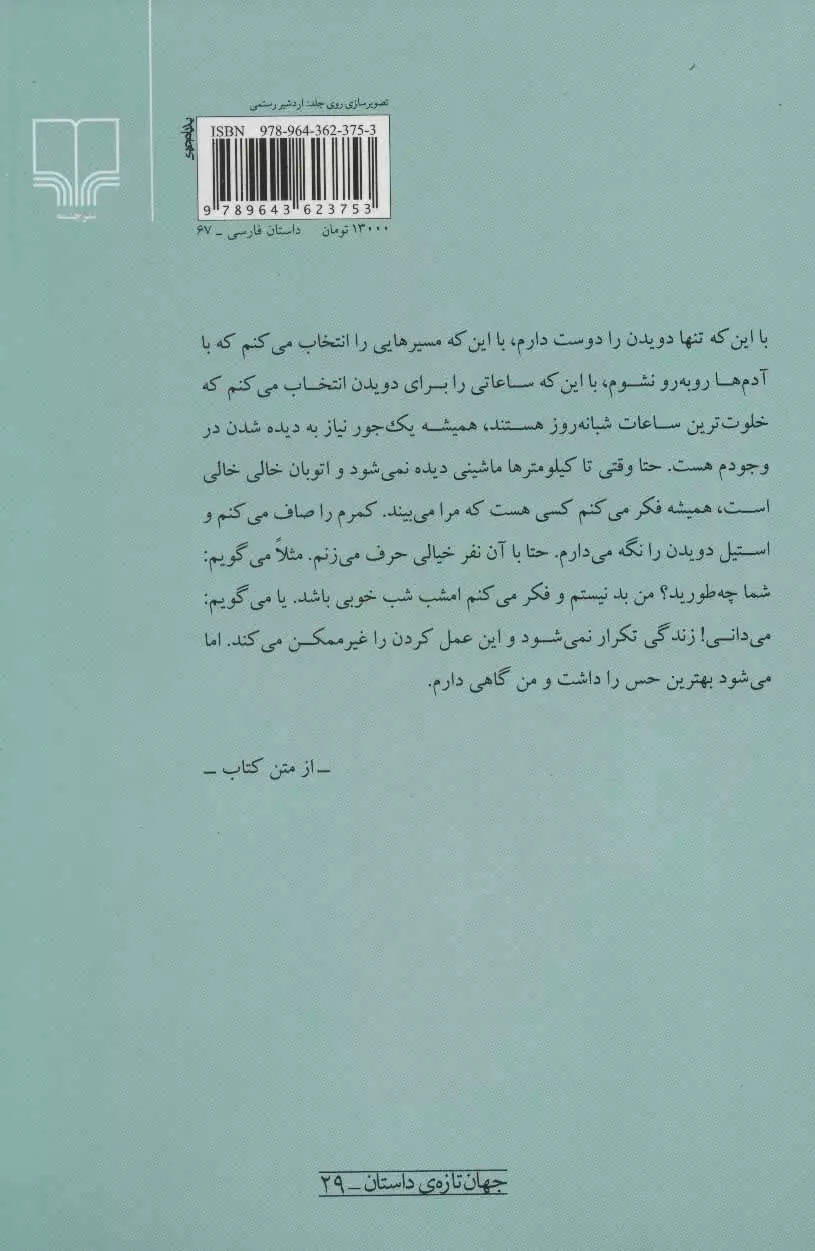 تصویرسازی روی جلد: اردشیر رستمی
ISBN 978-964-362-375-3
9 789643 623753
۱۳۰۰۰ تومان داستان فارسی ــ ۶۷
نشر چشمه
با این‌که تنها دویدن را دوست دارم، با این‌که مسیرهایی را انتخاب می‌کنم که با
آدم‌هـا روبه‌رو نشـوم، با این‌که سـاعاتی را بـرای دویدن انتخـاب می‌کنم که
خلوت‌ترین سـاعات شبانه‌روز هسـتند، همیشـه یک‌جور نیاز به دیده شدن در
وجودم هست. حتا وقتی تا کیلومترها ماشینی دیده نمی‌شود و اتوبان خالی خالی
اسـت، همیشه فکر می‌کنم کسی هست که مرا می‌بیند. کمرم را صاف می‌کنم و
اسـتیل دویدن را نگه می‌دارم. حتا با آن نفر خیالی حرف می‌زنم. مثلاً می‌گویم:
شما چه‌طورید؟ من بد نیستم و فکر می‌کنم امشب شب خوبی باشد. یا می‌گویم:
می‌دانـی! زندگی تکرار نمی‌شـود و این عمل کردن را غیرممکـن می‌کند. اما
می‌شود بهترین حس را داشت و من گاهی دارم.
ــ از متن کتاب ــ
جهان تازه‌ی داستان ــ ۲۹